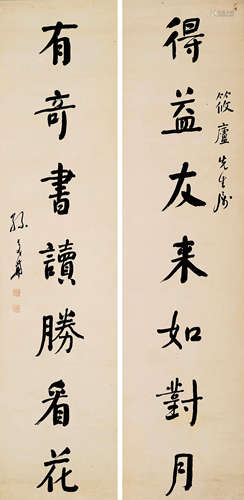 得益友来如對月
筱廬先生属
有奇書讀勝看花
孫